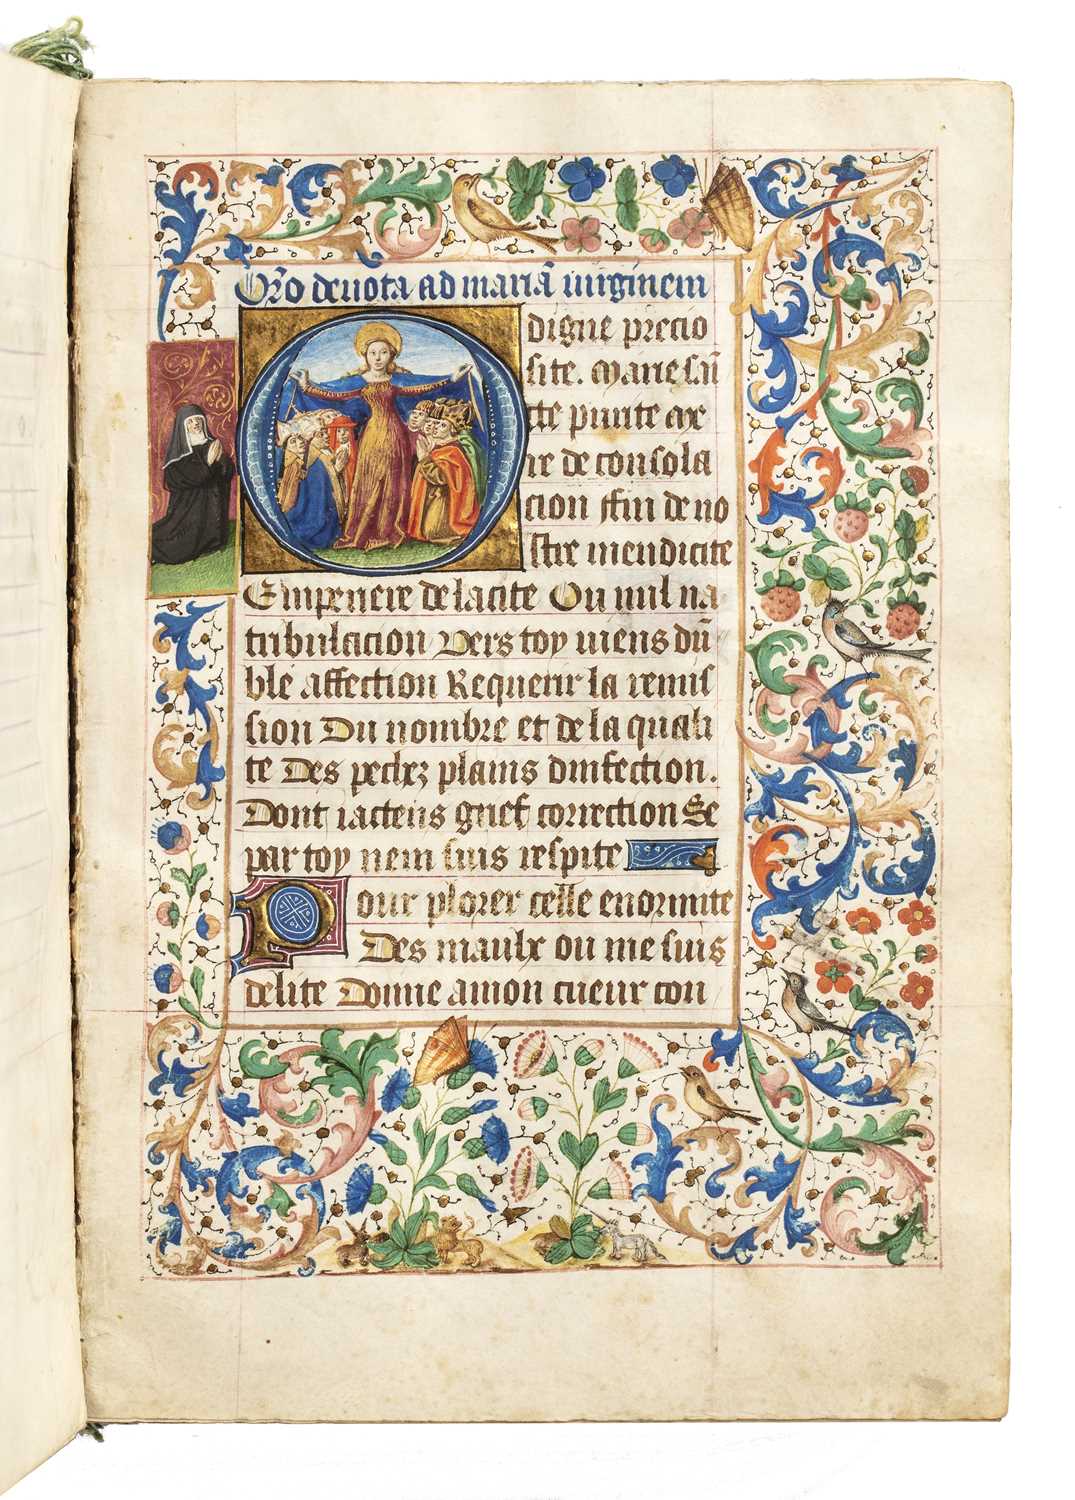 Oro devota ad mariā virginem
O digne precio
site. Marie sāī
cte pinte
re de consola
cion ffin de no
stre mendicite
Emperiere de la cite Ou nul na
tribulacion Vers toy viens dū
ble affection Requerir la remis
sion Du nombre et de la quali
te Des pechez plains dinfection.
Dont iactens grief correction Se
par toy nem suis respite
Pour plorer celle enormite
Des maulx ou me suis
delite Donne a mon cueur con